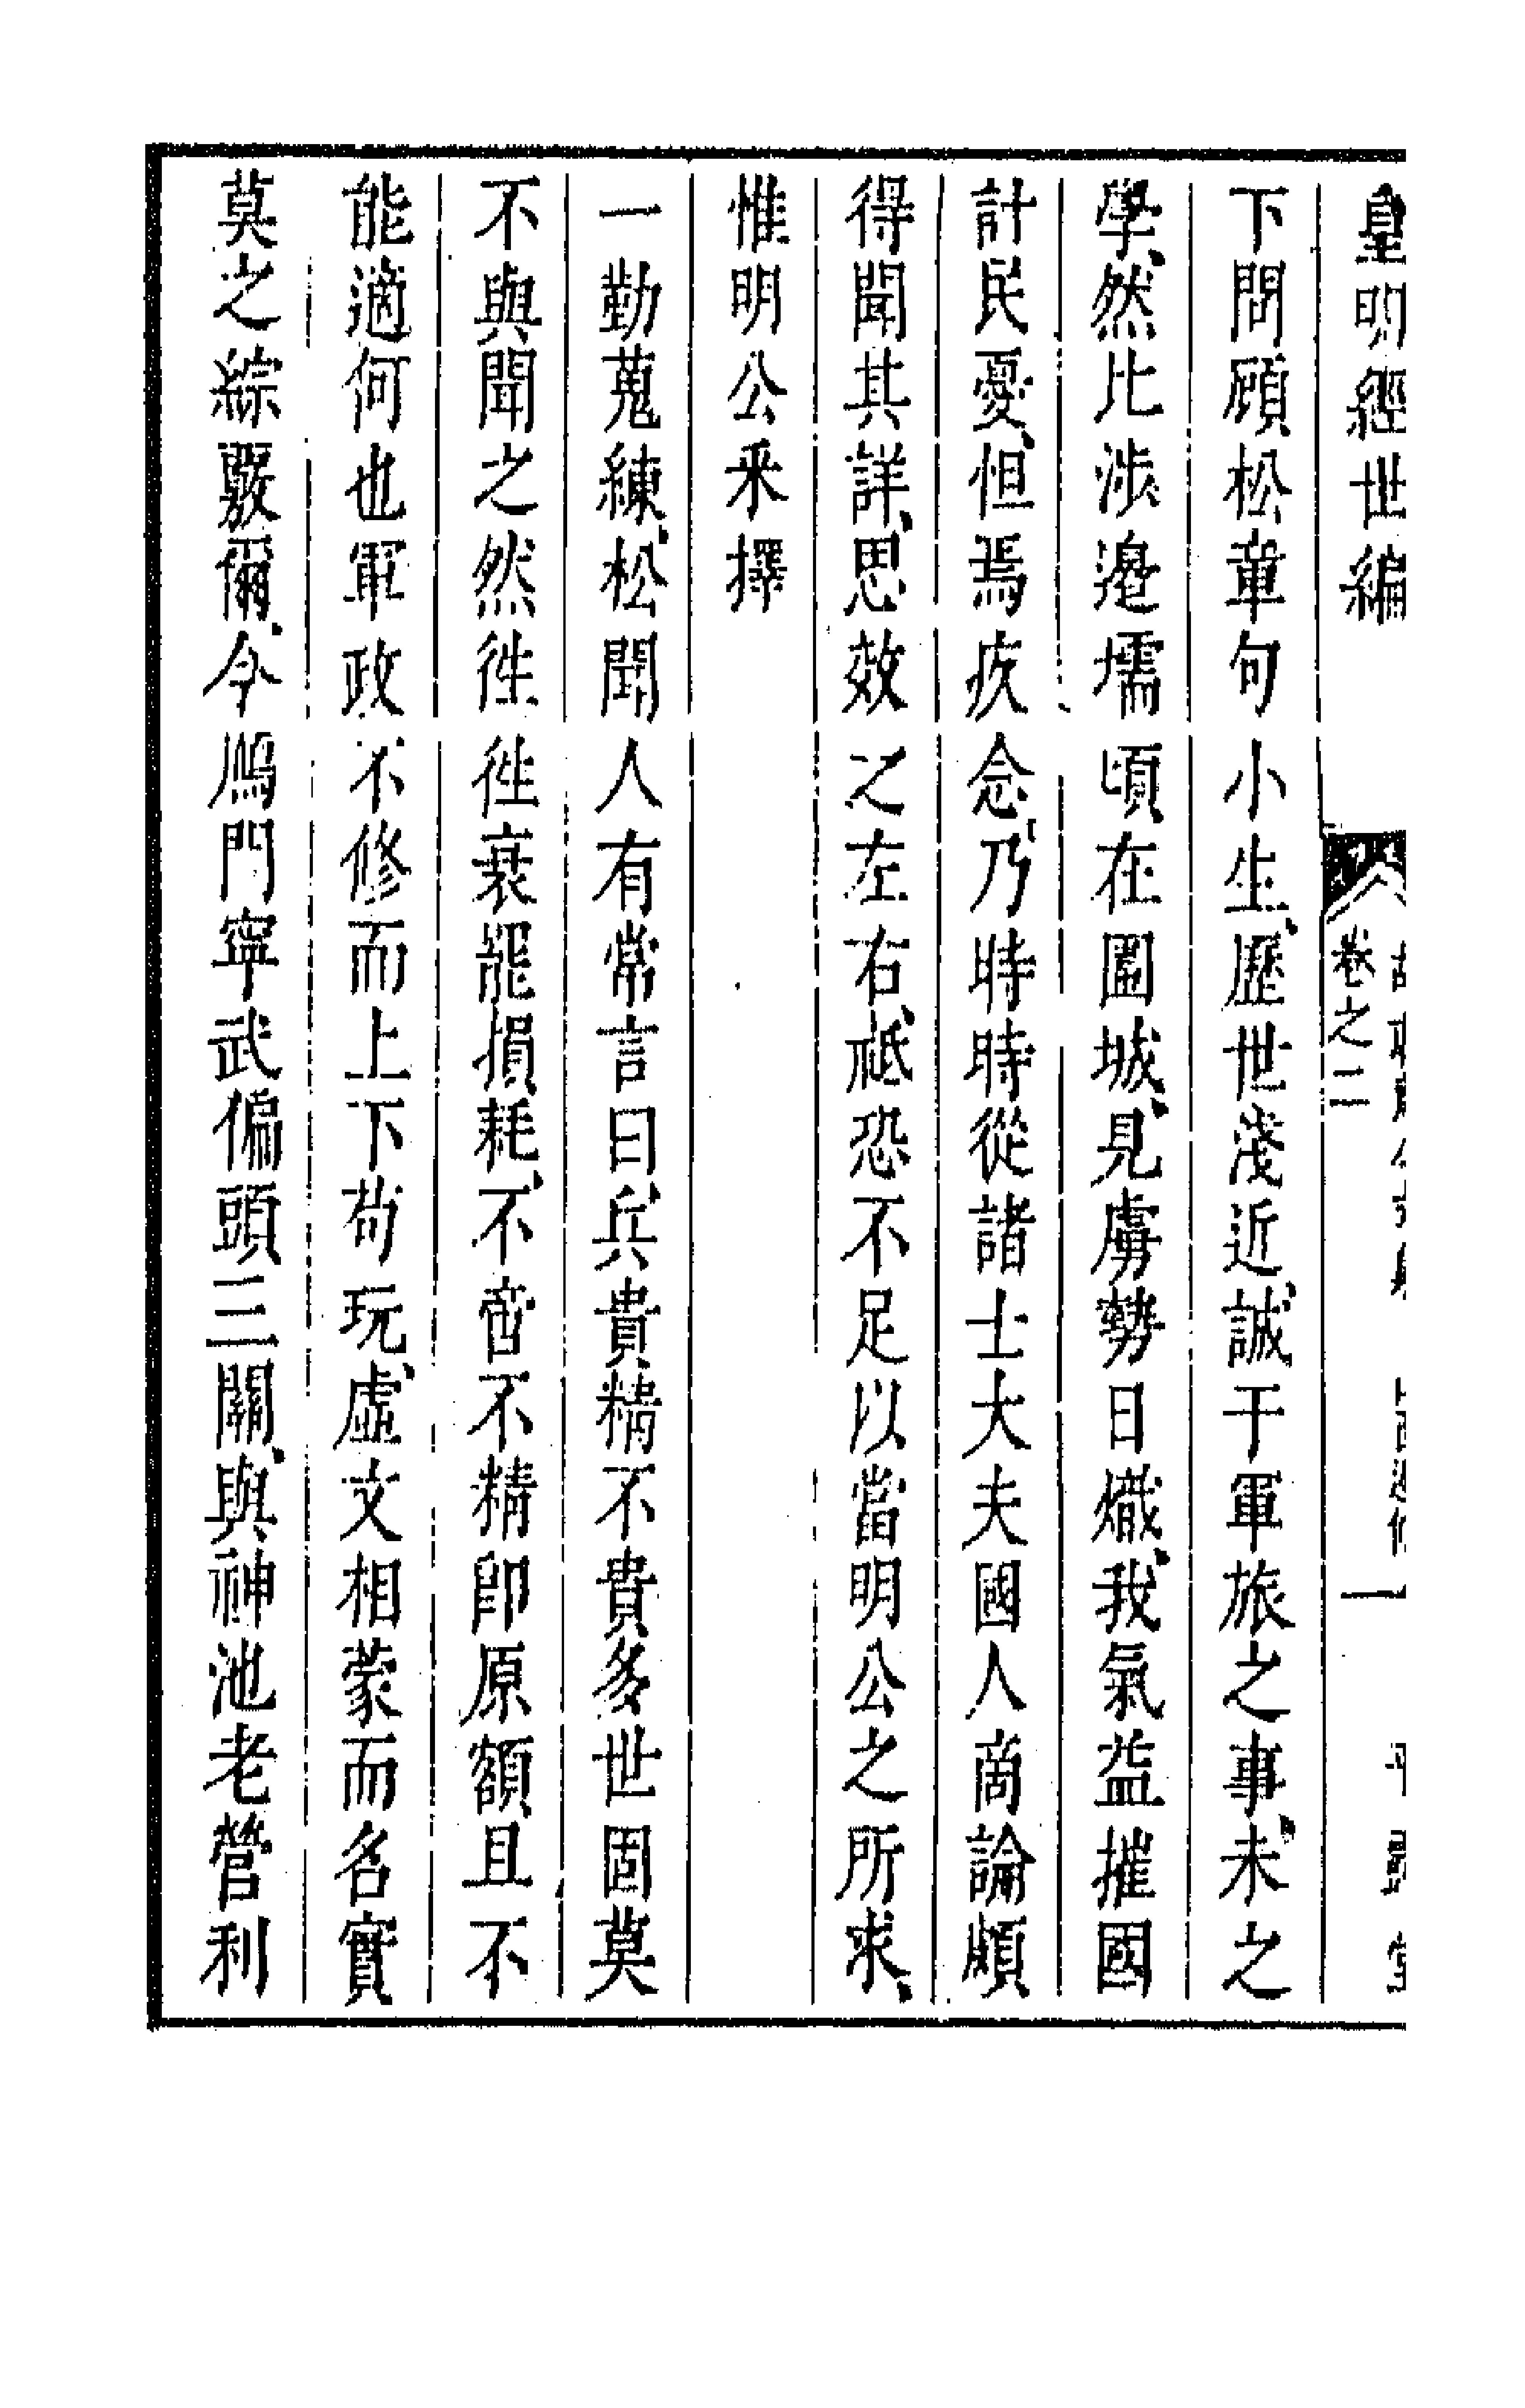 皇明經世編
卷之二
下問顧松章句小生歷世淺近誠于軍旅之事未之
學然比涉邉壖頃在圍城見虜勢日熾我氣益摧國
計民憂怛焉疚念乃時時從諸士大夫國人商論頗
得聞其詳思效之左右祗恐不足以當明公之所求
惟明公采擇
一勤蒐練松聞人有常言曰兵貴精不貴多世固莫
不與聞之然徃徃衰罷損耗不啻不精卽原額且不
能適何也軍政不修而上下苟玩虛文相蒙而名實
莫之綜覈爾今鴈門寧武偏頭三關與神池老營利